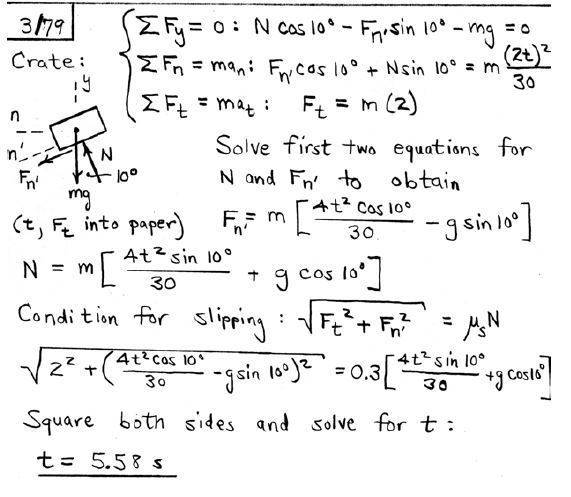 3/79
ΣFy = 0 : N cos 10° - Fn' sin 10° - mg = 0
Crate :
ΣFn = man : Fn' cos 10° + N sin 10° = m (2t)²/30
ΣFt = mat : Ft = m (2)
y
n
n'
Fn'
N
10°
mg
Solve first two equations for
N and Fn' to obtain
(t, Ft into paper)
Fn' = m [4t² cos 10°/30 - g sin 10°]
N = m [4t² sin 10°/30 + g cos 10°]
Condition for slipping : √(Ft² + Fn'²) = μsN
√(2² + (4t² cos 10°/30 - g sin 10°)²) = 0.3 [4t² sin 10°/30 + g cos 10°]
Square both sides and solve for t :
t = 5.58 s